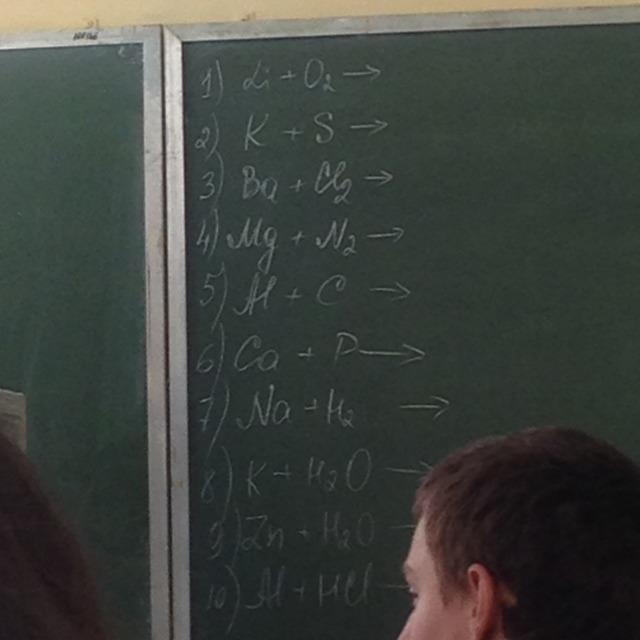 1) Li + O₂ →
2) K + S →
3) Ba + Cl₂ →
4) Mg + N₂ →
5) Al + C →
6) Ca + P →
7) Na + H₂ →
8) K + H₂O →
9) Zn + H₂O →
10) Al + HCl →